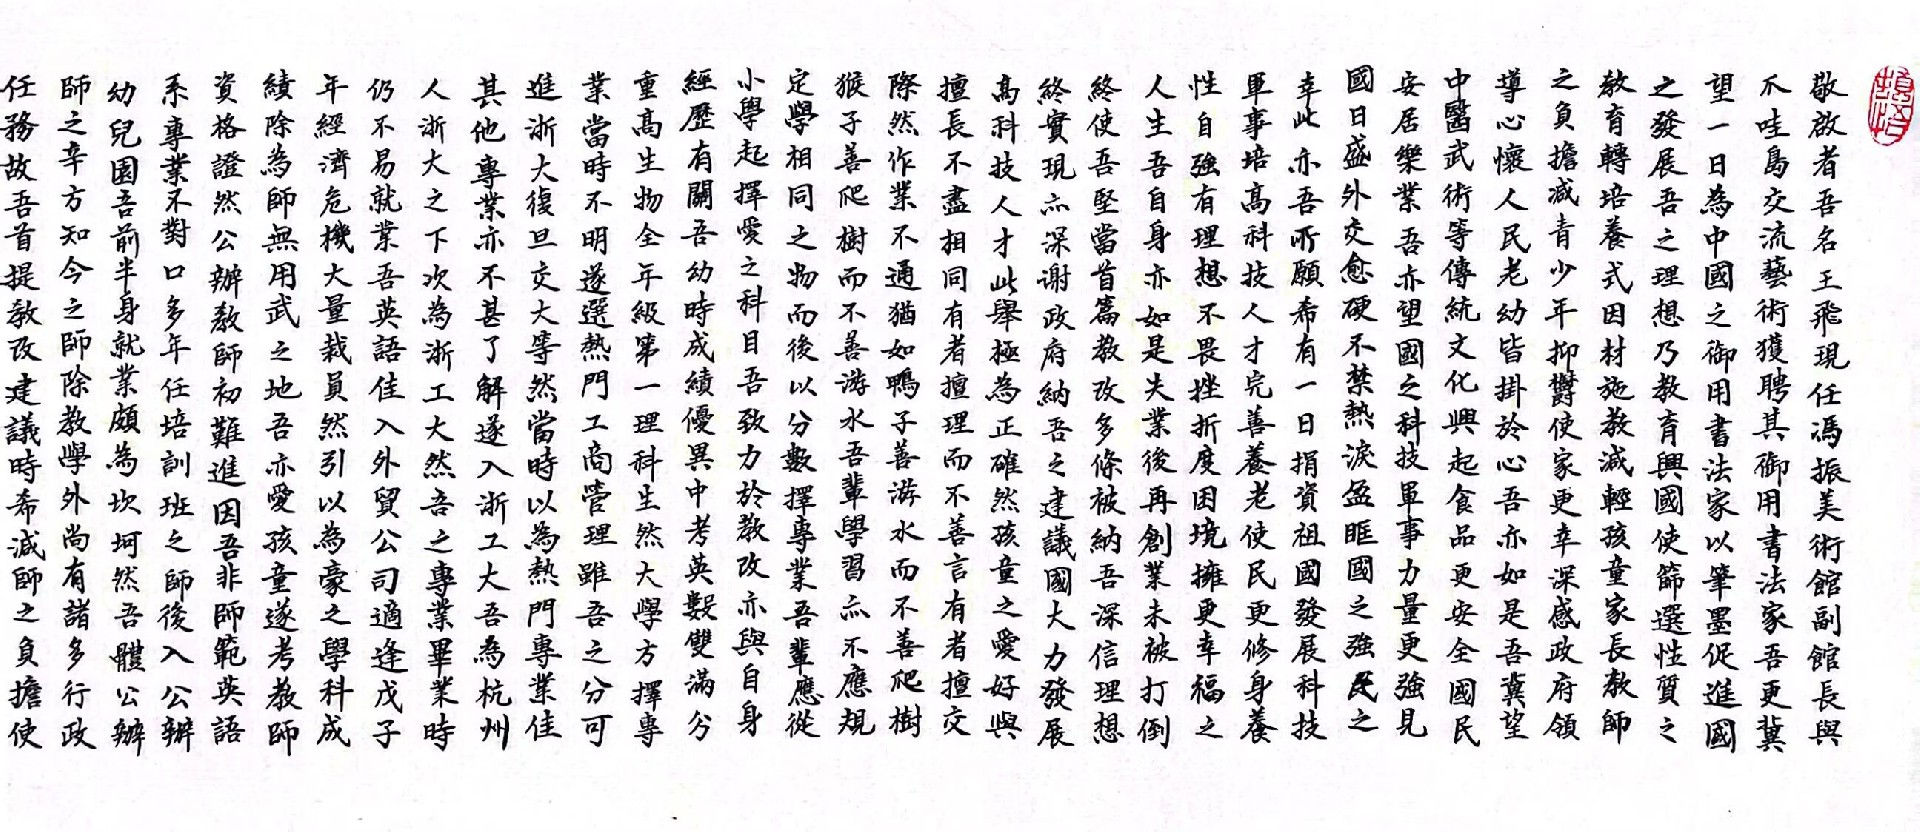 敬啟者吾名王飛現任馮振美術館副館長與
爪哇島交流藝術獲聘其御用書法家吾更冀
望一日為中國之御用書法家以筆墨促進國
之發展吾之理想乃教育興國使篩選性質之
教育轉培養式因材施教減輕孩童家長教師
之負擔減青少年抑鬱使家更幸深感政府領
導心懷人民老幼皆掛於心吾亦如是吾冀望
中醫武術等傳統文化興起食品更安全國民
安居樂業吾亦望國之科技軍事力量更強見
國日盛外交愈硬不禁熱淚盈眶國之強民之
幸此亦吾所願希有一日捐資祖國發展科技
軍事培高科技人才完善養老使民更修身養
性自強有理想不畏挫折度困境擁更幸福之
人生吾自身亦如是失業後再創業未被打倒
終使吾堅當首篇教改多條被納吾深信理想
終實現亦深谢政府納吾之建議國大力發展
高科技人才此舉極為正確然孩童之愛好與
擅長不盡相同有者擅理而不善言有者擅交
際然作業不通猶如鴨子善游水而不善爬樹
猴子善爬樹而不善游水吾輩學習亦不應規
定學相同之物而後以分數擇專業吾輩應從
小學起擇愛之科目吾致力於教改亦與自身
經歷有關吾幼時成績優異中考英數雙滿分
重高生物全年級第一理科生然大學方擇專
業當時不明遂選熱門工商管理雖吾之分可
進浙大復旦交大等然當時以為熱門專業佳
其他專業亦不甚了解遂入浙工大吾為杭州
人浙大之下次為浙工大然吾之專業畢業時
仍不易就業吾英語佳入外貿公司適逢戊子
年經濟危機大量裁員然引以為豪之學科成
績除為師無用武之地吾亦愛孩童遂考教師
資格證然公辦教師初難進因吾非師範英語
系專業不對口多年任培訓班之師後入公辦
幼兒園吾前半身就業頗為坎坷然吾體公辦
師之辛方知今之師除教學外尚有諸多行政
任務故吾首提教改建議時希減師之負擔使